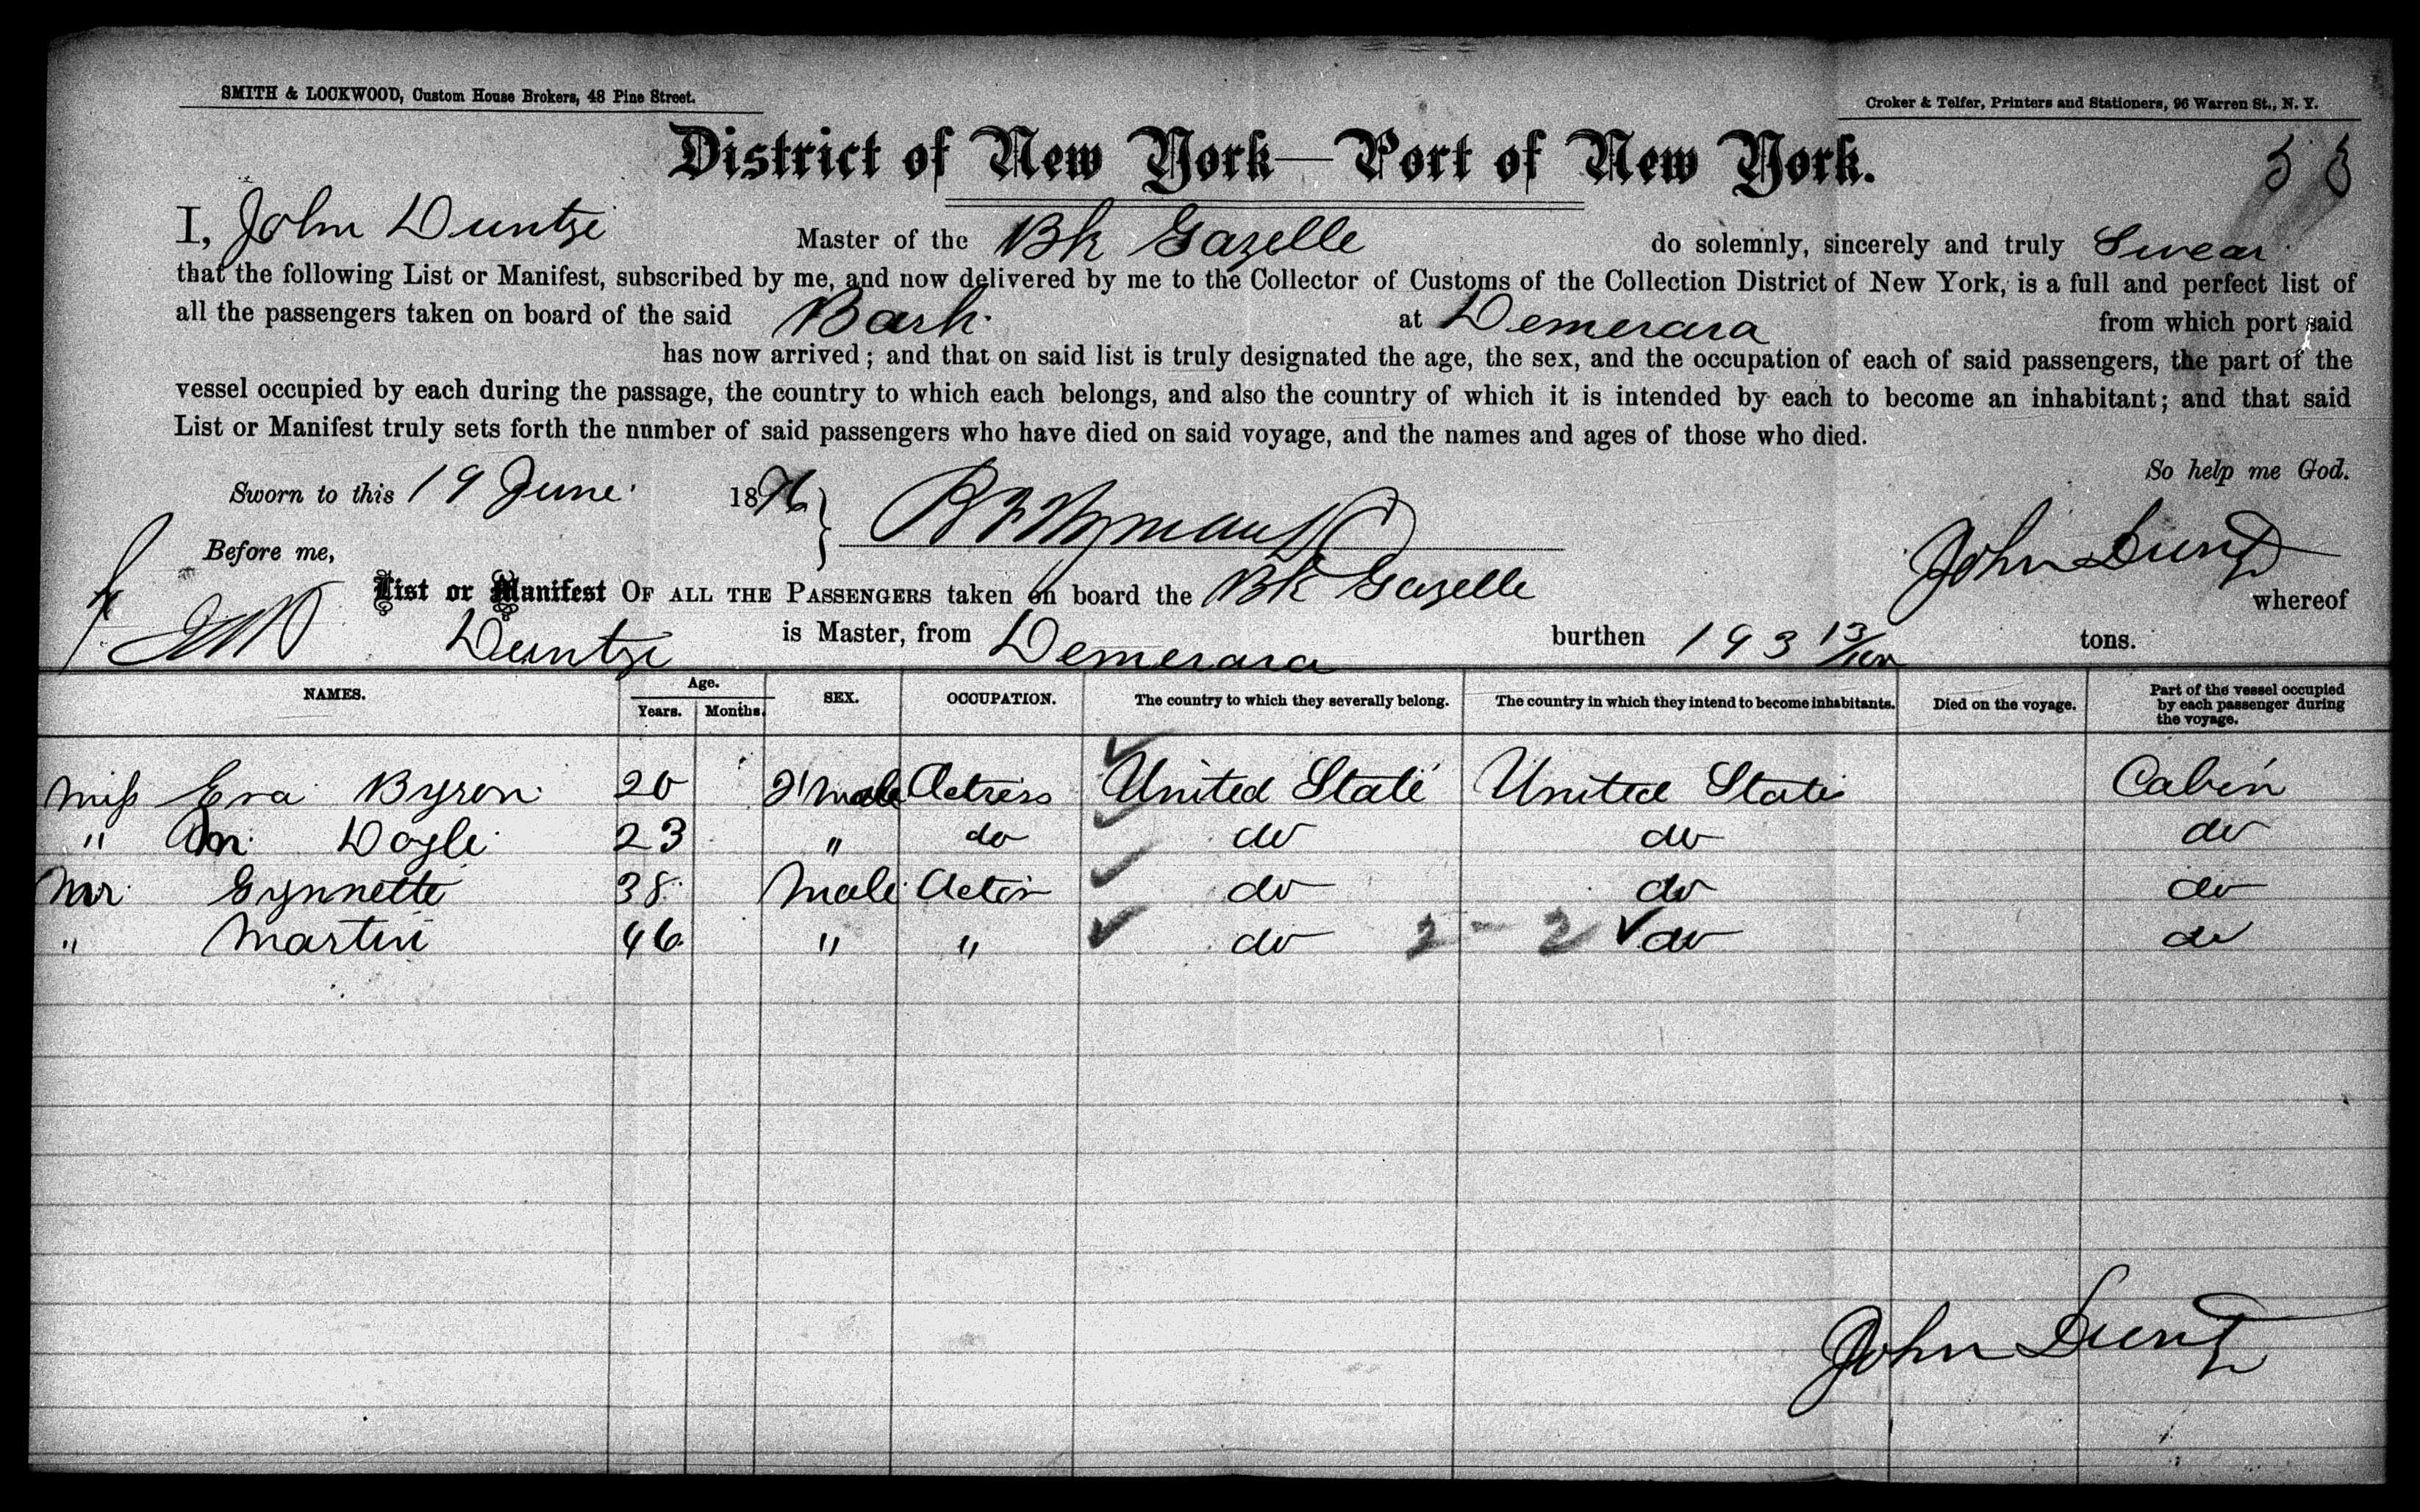 SMITH & LOCKWOOD, Custom House Brokers, 48 Pine Street.
Croker & Telfer, Printers and Stationers, 96 Warren St., N. Y.
District of New York—Port of New York.
I, John Duntze Master of the Bk Gazelle do solemnly, sincerely and truly Swear
that the following List or Manifest, subscribed by me, and now delivered by me to the Collector of Customs of the Collection District of New York, is a full and perfect list of
all the passengers taken on board of the said Bark at Demerara from which port said
has now arrived; and that on said list is truly designated the age, the sex, and the occupation of each of said passengers, the part of the
vessel occupied by each during the passage, the country to which each belongs, and also the country of which it is intended by each to become an inhabitant; and that said
List or Manifest truly sets forth the nnmber of said passengers who have died on said voyage, and the names and ages of those who died.
So help me God.
Sworn to this 19 June 1876
Before me,
John Duntz
List or Manifest OF ALL THE PASSENGERS taken on board the Bk Gazelle whereof
Duntze is Master, from Demerara burthen 193 13/100 tons.
NAMES. Age. Years. Months. SEX. OCCUPATION. The country to which they severally belong. The country in which they intend to become inhabitants. Died on the voyage. Part of the vessel occupied by each passenger during the voyage.
Miss Eva Byron 20 F'male Actress United State United States Cabin
" M. Dogle 23 " do do do do
Mr Gynnette 38 Male Actor do do do
" Martin 46 " " do 2 - 2 do do
John Duntz